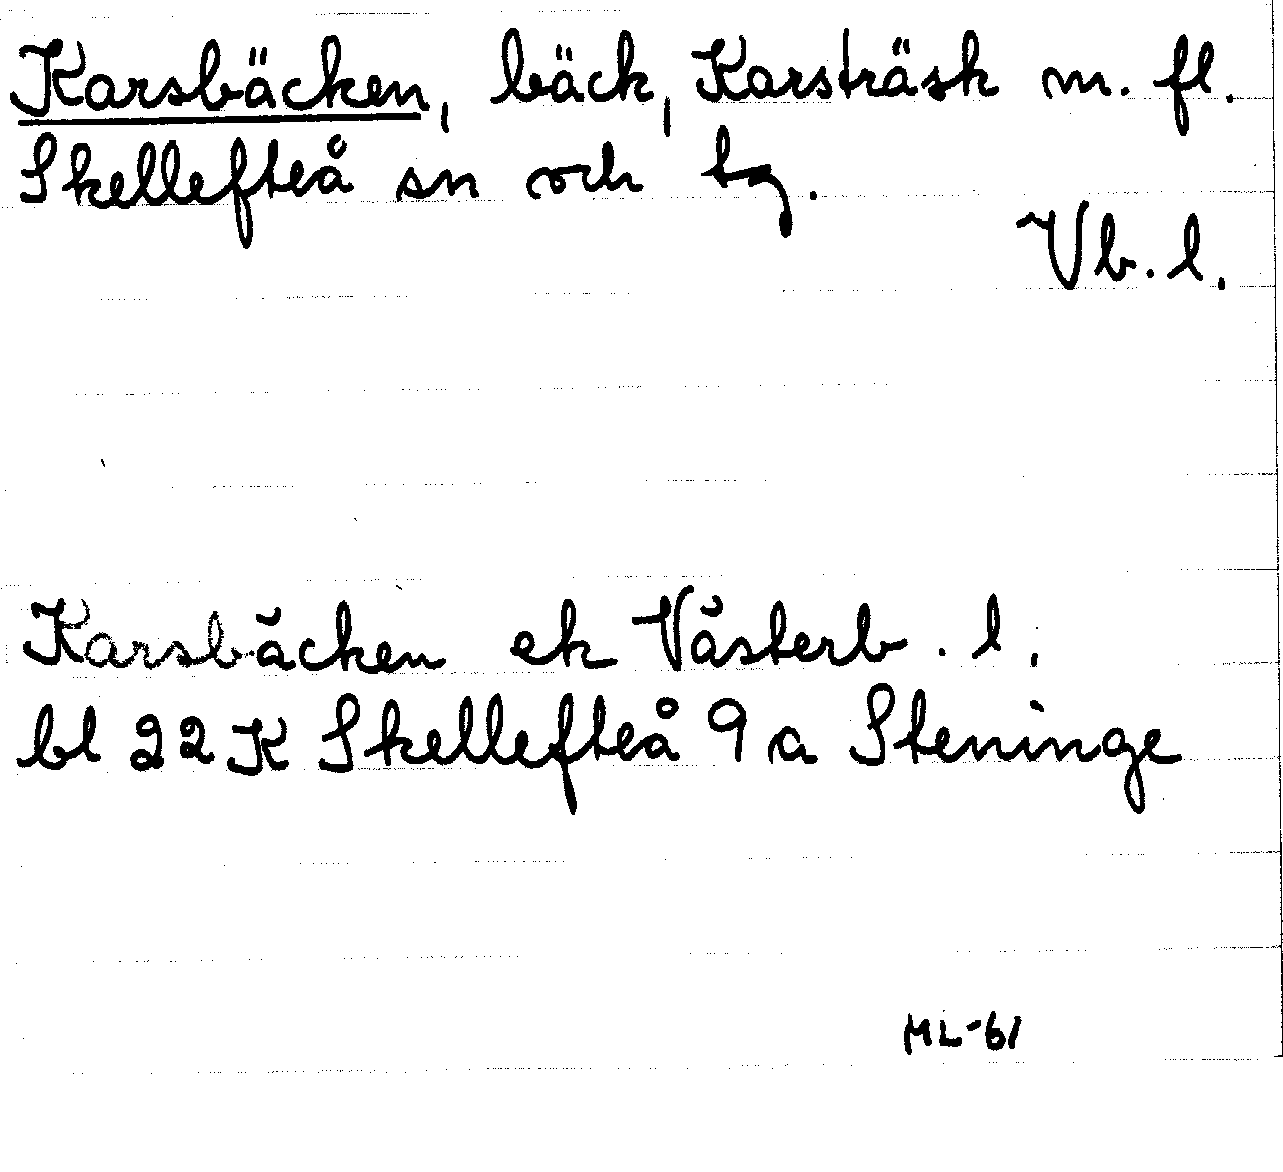 Karsbäcken, bäck, Karsträsk m. fl.
Skellefteå sn och tg.
Vb. l.
Karsbäcken ek Västerb. l.
bl 22K Skellefteå 9a Steninge
ML-61